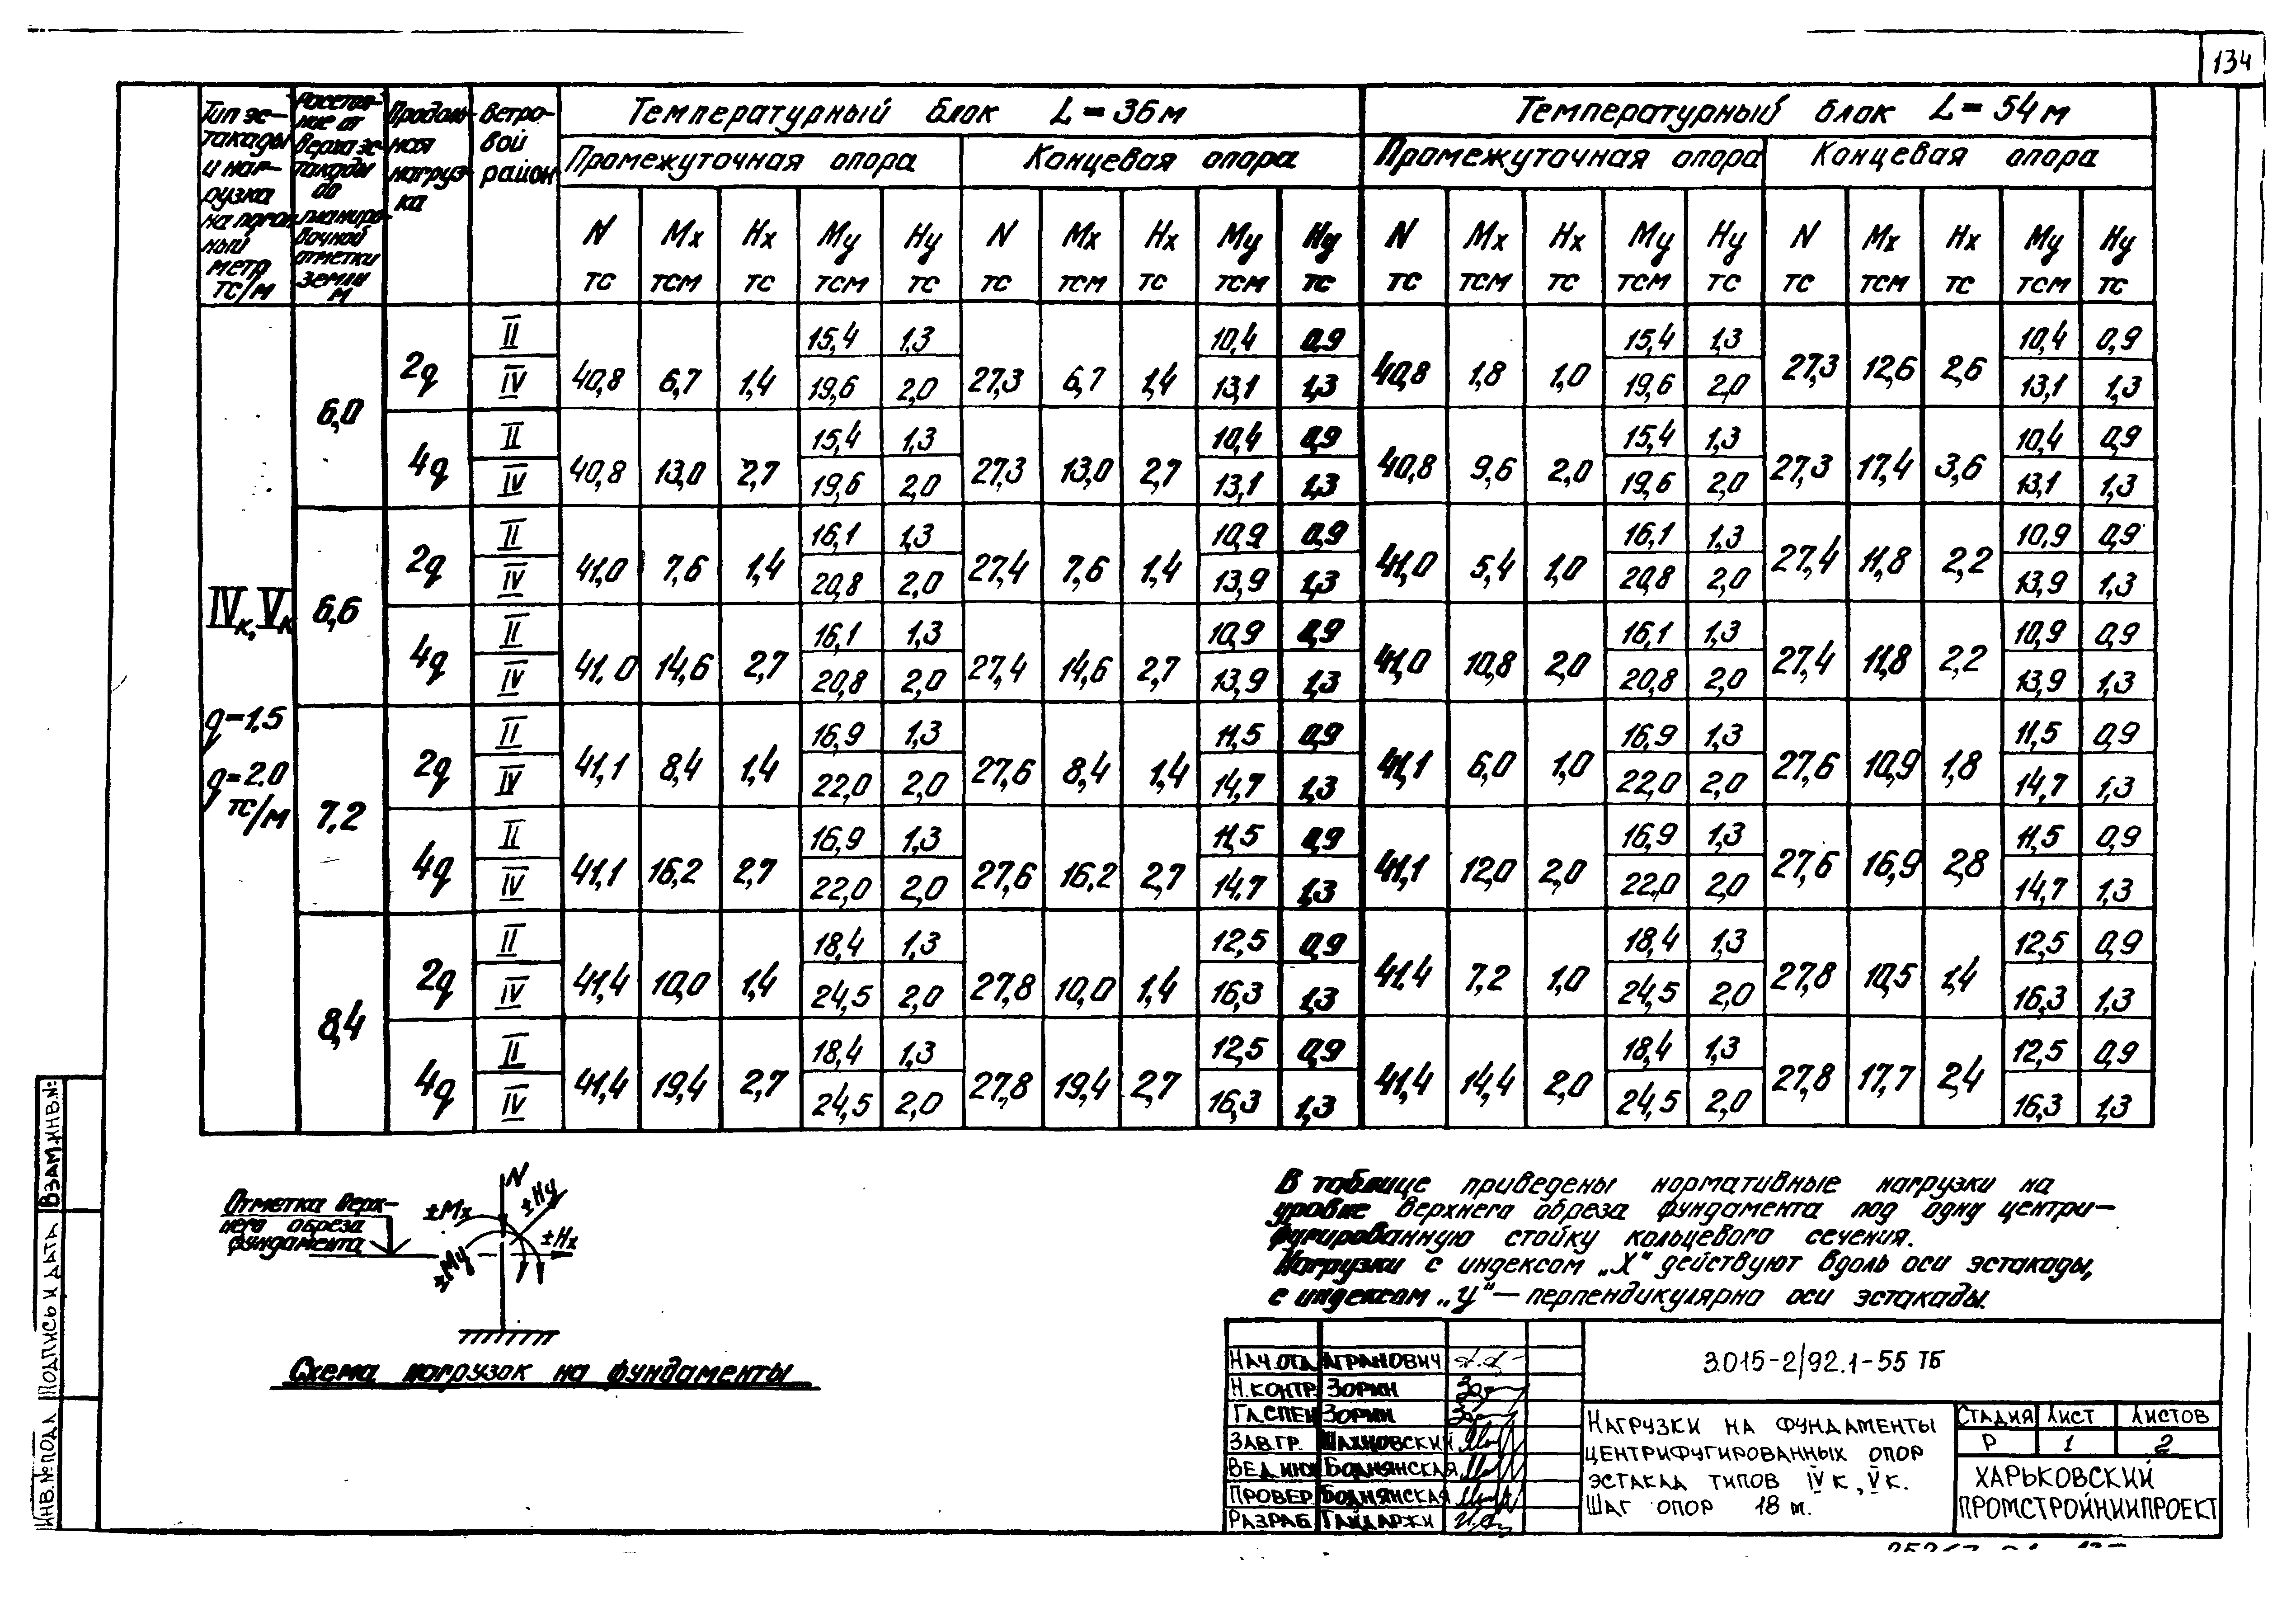 134
Тип эс-
такады
и наг-
рузка
на погон-
ный
метр
тс/м
Расстоя-
ние от
верха эс-
такады
до
планиро-
вочной
отметки
земли
м
Продоль-
ная
нагруз-
ка
Ветро-
вой
район
Температурный блок L=36м
Температурный блок L=54м
Промежуточная опора
Концевая опора
Промежуточная опора
Концевая опора
N Mx Hx My Hy N Mx Hx My Hy N Mx Hx My Hy N Mx Hx My Hy
тс тсм тс тсм тс тс тсм тс тсм тс тс тсм тс тсм тс тс тсм тс тсм тс
IVк, Vк
q=1.5
q=2.0
тс/м
6,0
2q
II 15,4 1,3 10,4 0,9 15,4 1,3 10,4 0,9
40,8 6,7 1,4 27,3 6,7 1,4 40,8 1,8 1,0 27,3 12,6 2,6
IV 19,6 2,0 13,1 1,3 19,6 2,0 13,1 1,3
4q
II 15,4 1,3 10,4 0,9 15,4 1,3 10,4 0,9
40,8 13,0 2,7 27,3 13,0 2,7 40,8 9,6 2,0 27,3 17,4 3,6
IV 19,6 2,0 13,1 1,3 19,6 2,0 13,1 1,3
6,6
2q
II 16,1 1,3 10,9 0,9 16,1 1,3 10,9 0,9
41,0 7,6 1,4 27,4 7,6 1,4 41,0 5,4 1,0 27,4 11,8 2,2
IV 20,8 2,0 13,9 1,3 20,8 2,0 13,9 1,3
4q
II 16,1 1,3 10,9 0,9 16,1 1,3 10,9 0,9
41,0 14,6 2,7 27,4 14,6 2,7 41,0 10,8 2,0 27,4 11,8 2,2
IV 20,8 2,0 13,9 1,3 20,8 2,0 13,9 1,3
7,2
2q
II 16,9 1,3 11,5 0,9 16,9 1,3 11,5 0,9
41,1 8,4 1,4 27,6 8,4 1,4 41,1 6,0 1,0 27,6 10,9 1,8
IV 22,0 2,0 14,7 1,3 22,0 2,0 14,7 1,3
4q
II 16,9 1,3 11,5 0,9 16,9 1,3 11,5 0,9
41,1 16,2 2,7 27,6 16,2 2,7 41,1 12,0 2,0 27,6 16,9 2,8
IV 22,0 2,0 14,7 1,3 22,0 2,0 14,7 1,3
8,4
2q
II 18,4 1,3 12,5 0,9 18,4 1,3 12,5 0,9
41,4 10,0 1,4 27,8 10,0 1,4 41,4 7,2 1,0 27,8 10,5 1,4
IV 24,5 2,0 16,3 1,3 24,5 2,0 16,3 1,3
4q
II 18,4 1,3 12,5 0,9 18,4 1,3 12,5 0,9
41,4 19,4 2,7 27,8 19,4 2,7 41,4 14,4 2,0 27,8 17,7 2,4
IV 24,5 2,0 16,3 1,3 24,5 2,0 16,3 1,3
Отметка верх-
него обреза
фундамента
N
±Mx
±Hy
±Hx
±My
Схема нагрузок на фундаменты
В таблице приведены нормативные нагрузки на
уровне верхнего обреза фундамента под одну центри-
фугированную стойку кольцевого сечения.
Нагрузки с индексом „X" действуют вдоль оси эстакады,
с индексом „У" — перпендикулярно оси эстакады.
НАЧ.ОТД. АГРАНОВИЧ
Н.КОНТР. ЗОРИН
ГЛ.СПЕЦ ЗОРИН
ЗАВ.ГР. ШАХНОВСКИЙ
ВЕД.ИНЖ БОДНЯНСКАЯ
ПРОВЕР. БОДНЯНСКАЯ
РАЗРАБ. ГАЙДАРЖИ
3.015-2/92.1-55 ТБ
НАГРУЗКИ НА ФУНДАМЕНТЫ
ЦЕНТРИФУГИРОВАННЫХ ОПОР
ЭСТАКАД ТИПОВ IVк, Vк.
ШАГ ОПОР 18 м.
СТАДИЯ ЛИСТ ЛИСТОВ
Р 1 2
ХАРЬКОВСКИЙ
ПРОМСТРОЙНИИПРОЕКТ
ИНВ.№ ПОДЛ
ПОДПИСЬ И ДАТА
ВЗАМ.ИНВ.№